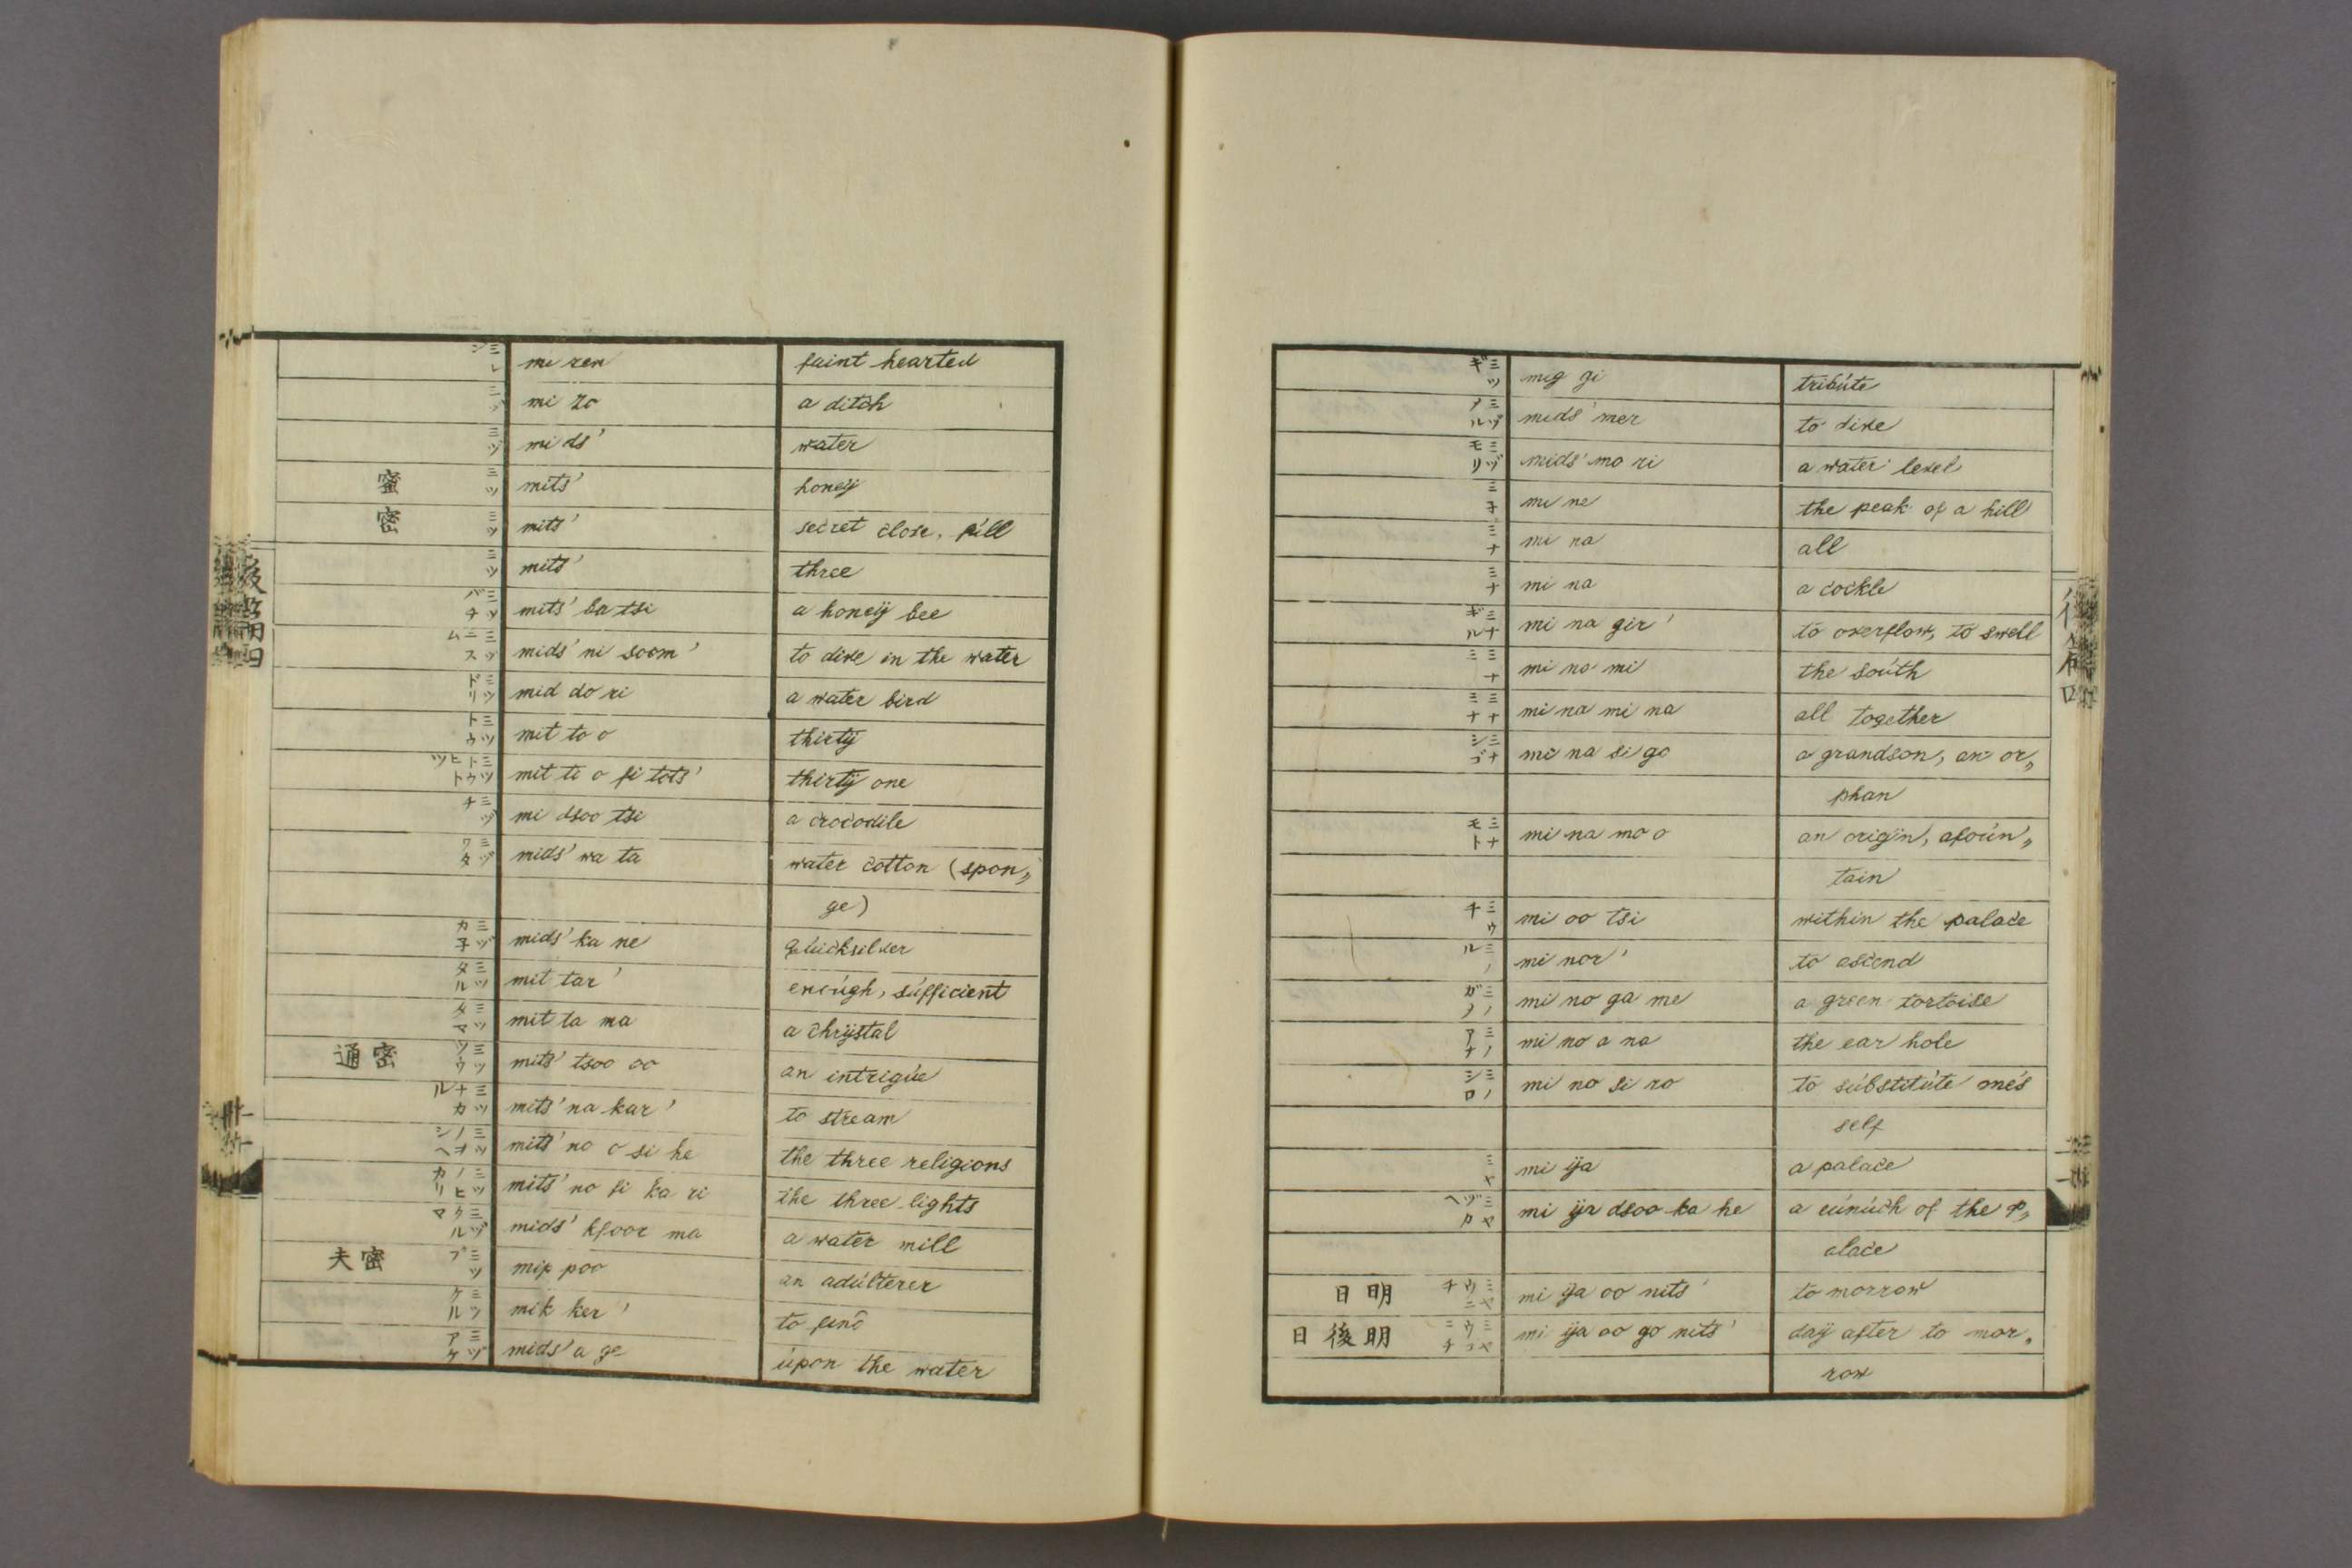 ミレン mi ren faint hearted
ミゾ mi zo a ditch
ミヅ mi ds' water
蜜 ミツ mits' honey
密 ミツ mits' secret close, fill
ミツ mits' three
ミツバチ mits' ba tsi a honeÿ bee
ミヅニスム mids' ni soom' to dive in the water
ミツドリ mid do ri a water bird
ミツトウ mit to o thirtÿ
ミツトウヒトツ mit to o fi tots' thirtÿ one
ミヅチ mi dsoo tsi a crocodile
ミヅワタ mids' wa ta water cotton (spon„
ge)
ミヅカ子 mids' ka ne quicksilver
ミツタル mit tar' enough, sufficient
ミツタマ mit ta ma a chrÿstal
通密 ミツツウ mits' tsoo oo an intrigue
ミツナカル mits' na kar' to stream
ミツノオシヘ mits' no o si he the three religions
ミツノヒカリ mits' no fi ka ri the three lights
ミヅクルマ mids' kfoor ma a water mill
夫密 ミツプ mip poo an adulterer
ミツケル mik ker' to find
ミヅアケ mids' a ge upon the water
ミツギ mig gi tribute
ミヅメル mids' mer to dive
ミヅモリ mids' mo ri a water level
ミ子 mi ne the peak of a hill
ミナ mi na all
ミナ mi na a cockle
ミナギル mi na gir' to overflow, to swell
ミナミ mi na mi the south
ミナミナ mi na mi na all together
ミナシゴ mi na si go a grandson, an or„
phan
ミナモト mi na mo o an origin, a foun„
tain
ミウチ mi oo tsi within the palace
ミノル mi nor' to ascend
ミノガメ mi no ga me a green tortoise
ミノアナ mi no a na the ear hole
ミノシロ mi no si ro to substitute one's
self
ミヤ mi ÿa a palace
ミヤヅカヘ mi ÿa dsoo ka he a eunuch of the p„
alace
日明 ミヤウニチ mi ÿa oo nits' to morrow
日後明 ミヤウゴニチ mi ÿa oo go nits' daÿ after to mor„
row